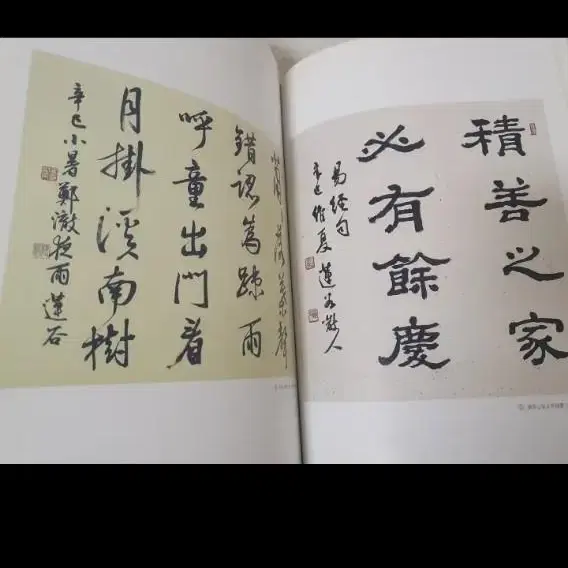 落葉聲
錯認爲疎雨
呼童出門看
月掛溪南樹
辛巳小暑鄭澈夜雨蓮石
積善之家
必有餘慶
易經句
辛巳維夏 蓮 散人